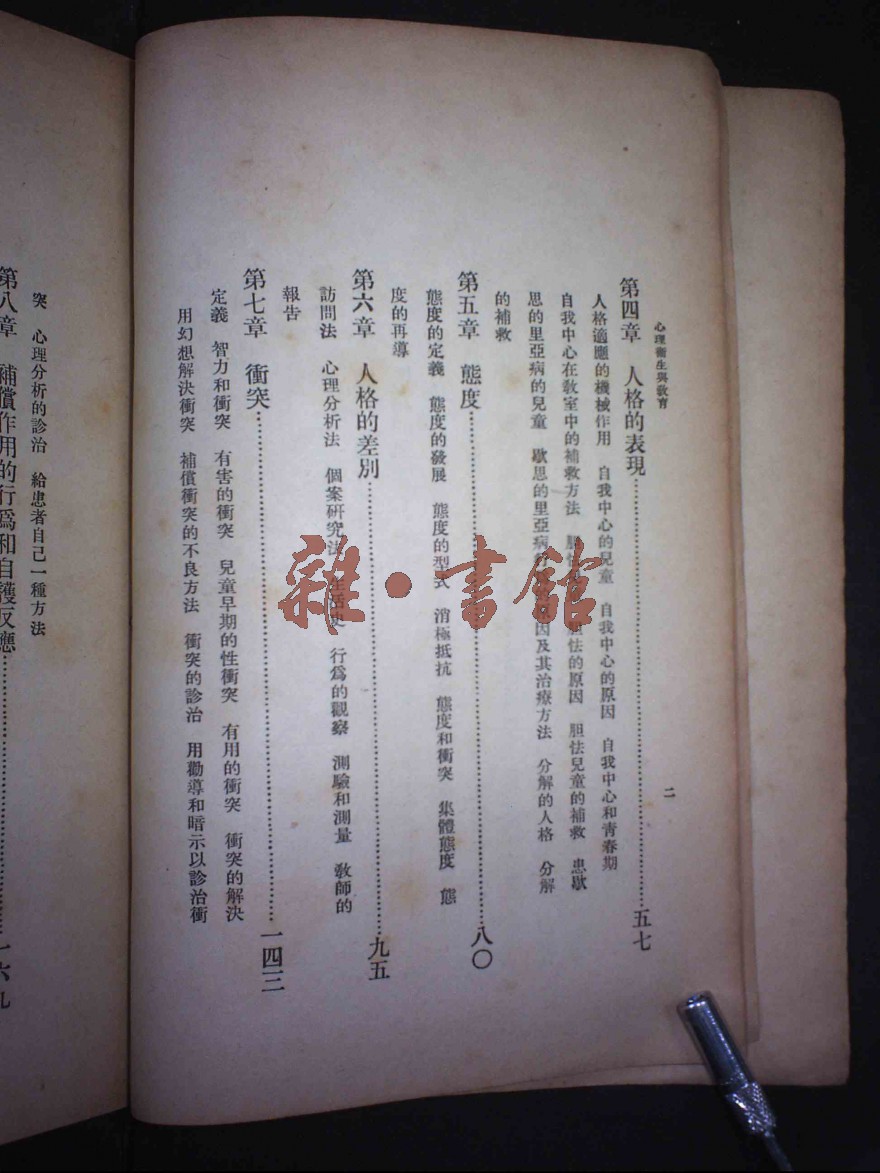 心理衞生與教育
二
第四章　人格的表現……五七
人格適應的機械作用　自我中心的兒童　自我中心的原因　自我中心和青春期
自我中心在教室中的補救方法　胆怯　胆怯的原因　胆怯兒童的補救　患歇
思的里亞病的兒童　歇思的里亞病　原因及其治療方法　分解的人格　分解
的補救
第五章　態度……八〇
態度的定義　態度的發展　態度的型式　消極抵抗　態度和衝突　集體態度　態
度的再導
第六章　人格的差別……九五
訪問法　心理分析法　個案研究法　生活史　行爲的觀察　測驗和測量　教師的
報告
第七章　衝突……一四三
定義　智力和衝突　有害的衝突　兒童早期的性衝突　有用的衝突　衝突的解決
用幻想解決衝突　補償衝突的不良方法　衝突的診治　用勸導和暗示以診治衝
突　心理分析的診治　給患者自己一種方法
第八章　補償作用的行爲和自護反應……一六九
雜·書館